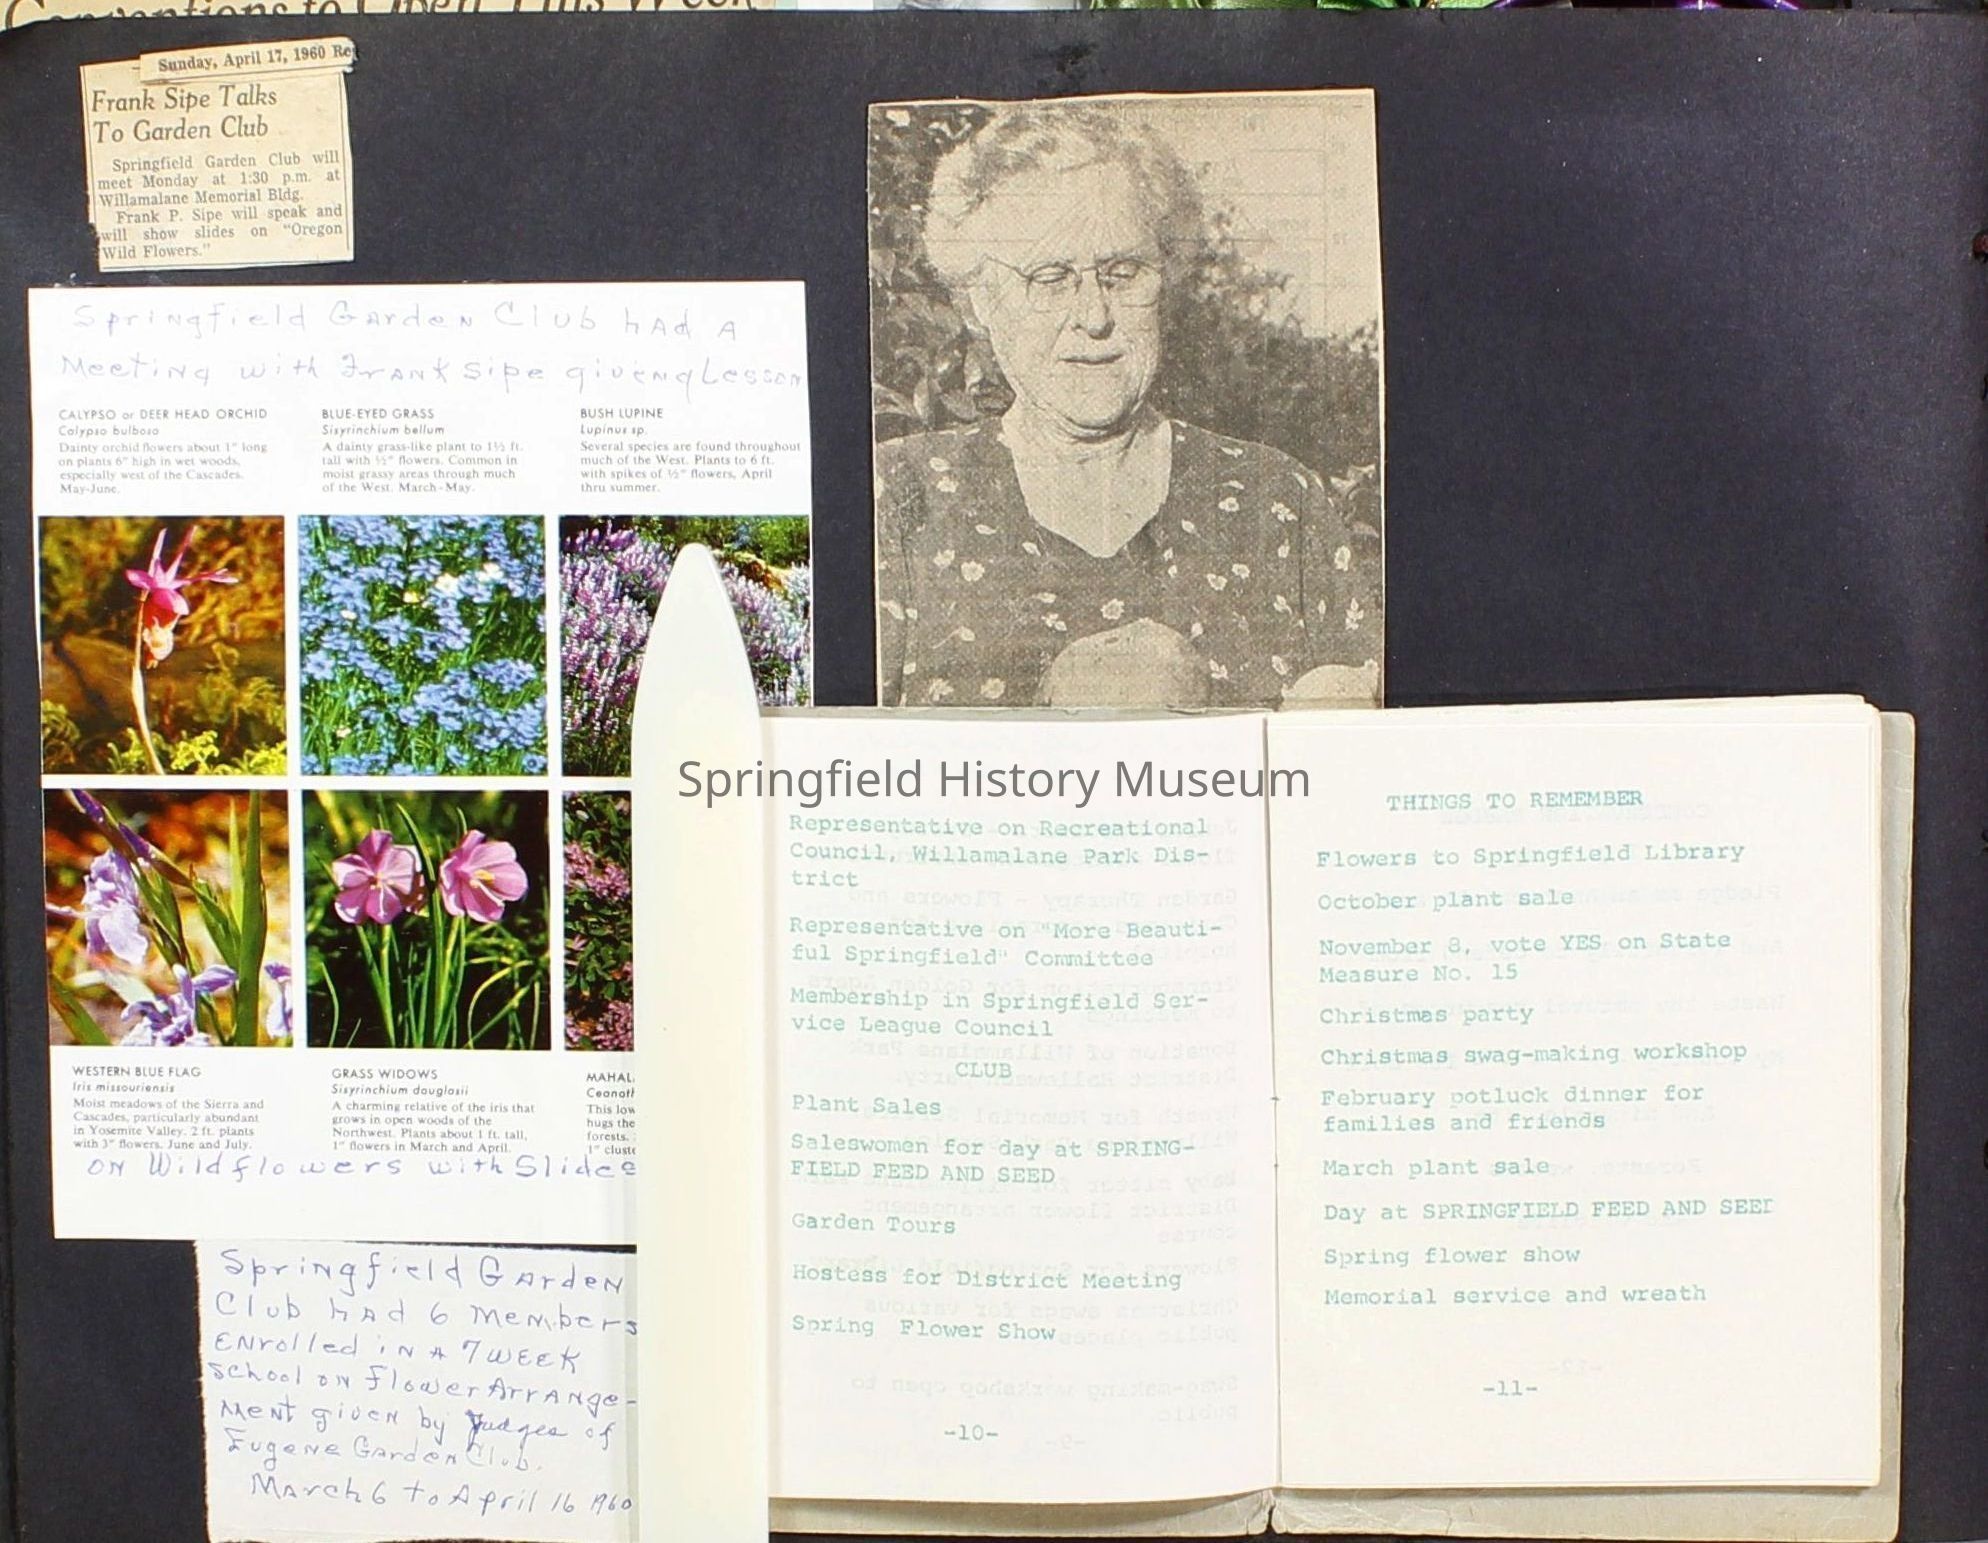 Sunday, April 17, 1960 Re
Frank Sipe Talks
To Garden Club
Springfield Garden Club will
meet Monday at 1:30 p.m. at
Willamalane Memorial Bldg.
Frank P. Sipe will speak and
will show slides on "Oregon
Wild Flowers."
Springfield Garden Club had a
Meeting with Frank Sipe giveng Lesson
CALYPSO or DEER HEAD ORCHID
Calypso bulbosa
Dainty orchid flowers about 1" long
on plants 6" high in wet woods,
especially west of the Cascades.
May-June.
BLUE-EYED GRASS
Sisyrinchium bellum
A dainty grass-like plant to 1½ ft.
tall with ½" flowers. Common in
moist grassy areas through much
of the West. March-May.
BUSH LUPINE
Lupinus sp.
Several species are found throughout
much of the West. Plants to 6 ft.
with spikes of ½" flowers, April
thru summer.
WESTERN BLUE FLAG
Iris missouriensis
Moist meadows of the Sierra and
Cascades, particularly abundant
in Yosemite Valley. 2 ft. plants
with 3" flowers. June and July.
GRASS WIDOWS
Sisyrinchium douglasii
A charming relative of the iris that
grows in open woods of the
Northwest. Plants about 1 ft. tall,
1" flowers in March and April.
MAHAL
Ceanoth
This low
hugs the
forests.
1" cluste
on Wildflowers with Slides
Springfield Garden
Club had 6 members
Enrolled in a 7 week
School on Flower Arrange-
ment given by Judges of
Eugene Garden Club.
March 6 to April 16 1960
Springfield History Museum
Representative on Recreational
Council, Willamalane Park Dis-
trict
Representative on "More Beauti-
ful Springfield" Committee
Membership in Springfield Ser-
vice League Council
CLUB
Plant Sales
Saleswomen for day at SPRING-
FIELD FEED AND SEED
Garden Tours
Hostess for District Meeting
Spring Flower Show
-10-
THINGS TO REMEMBER
Flowers to Springfield Library
October plant sale
November 8, vote YES on State
Measure No. 15
Christmas party
Christmas swag-making workshop
February potluck dinner for
families and friends
March plant sale
Day at SPRINGFIELD FEED AND SEED
Spring flower show
Memorial service and wreath
-11-